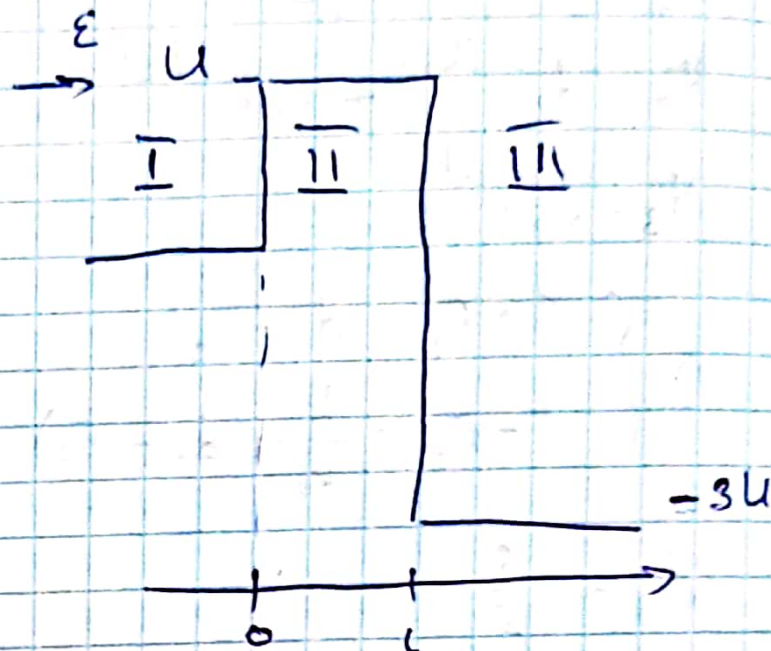 ε
U
I II III
-3U
0